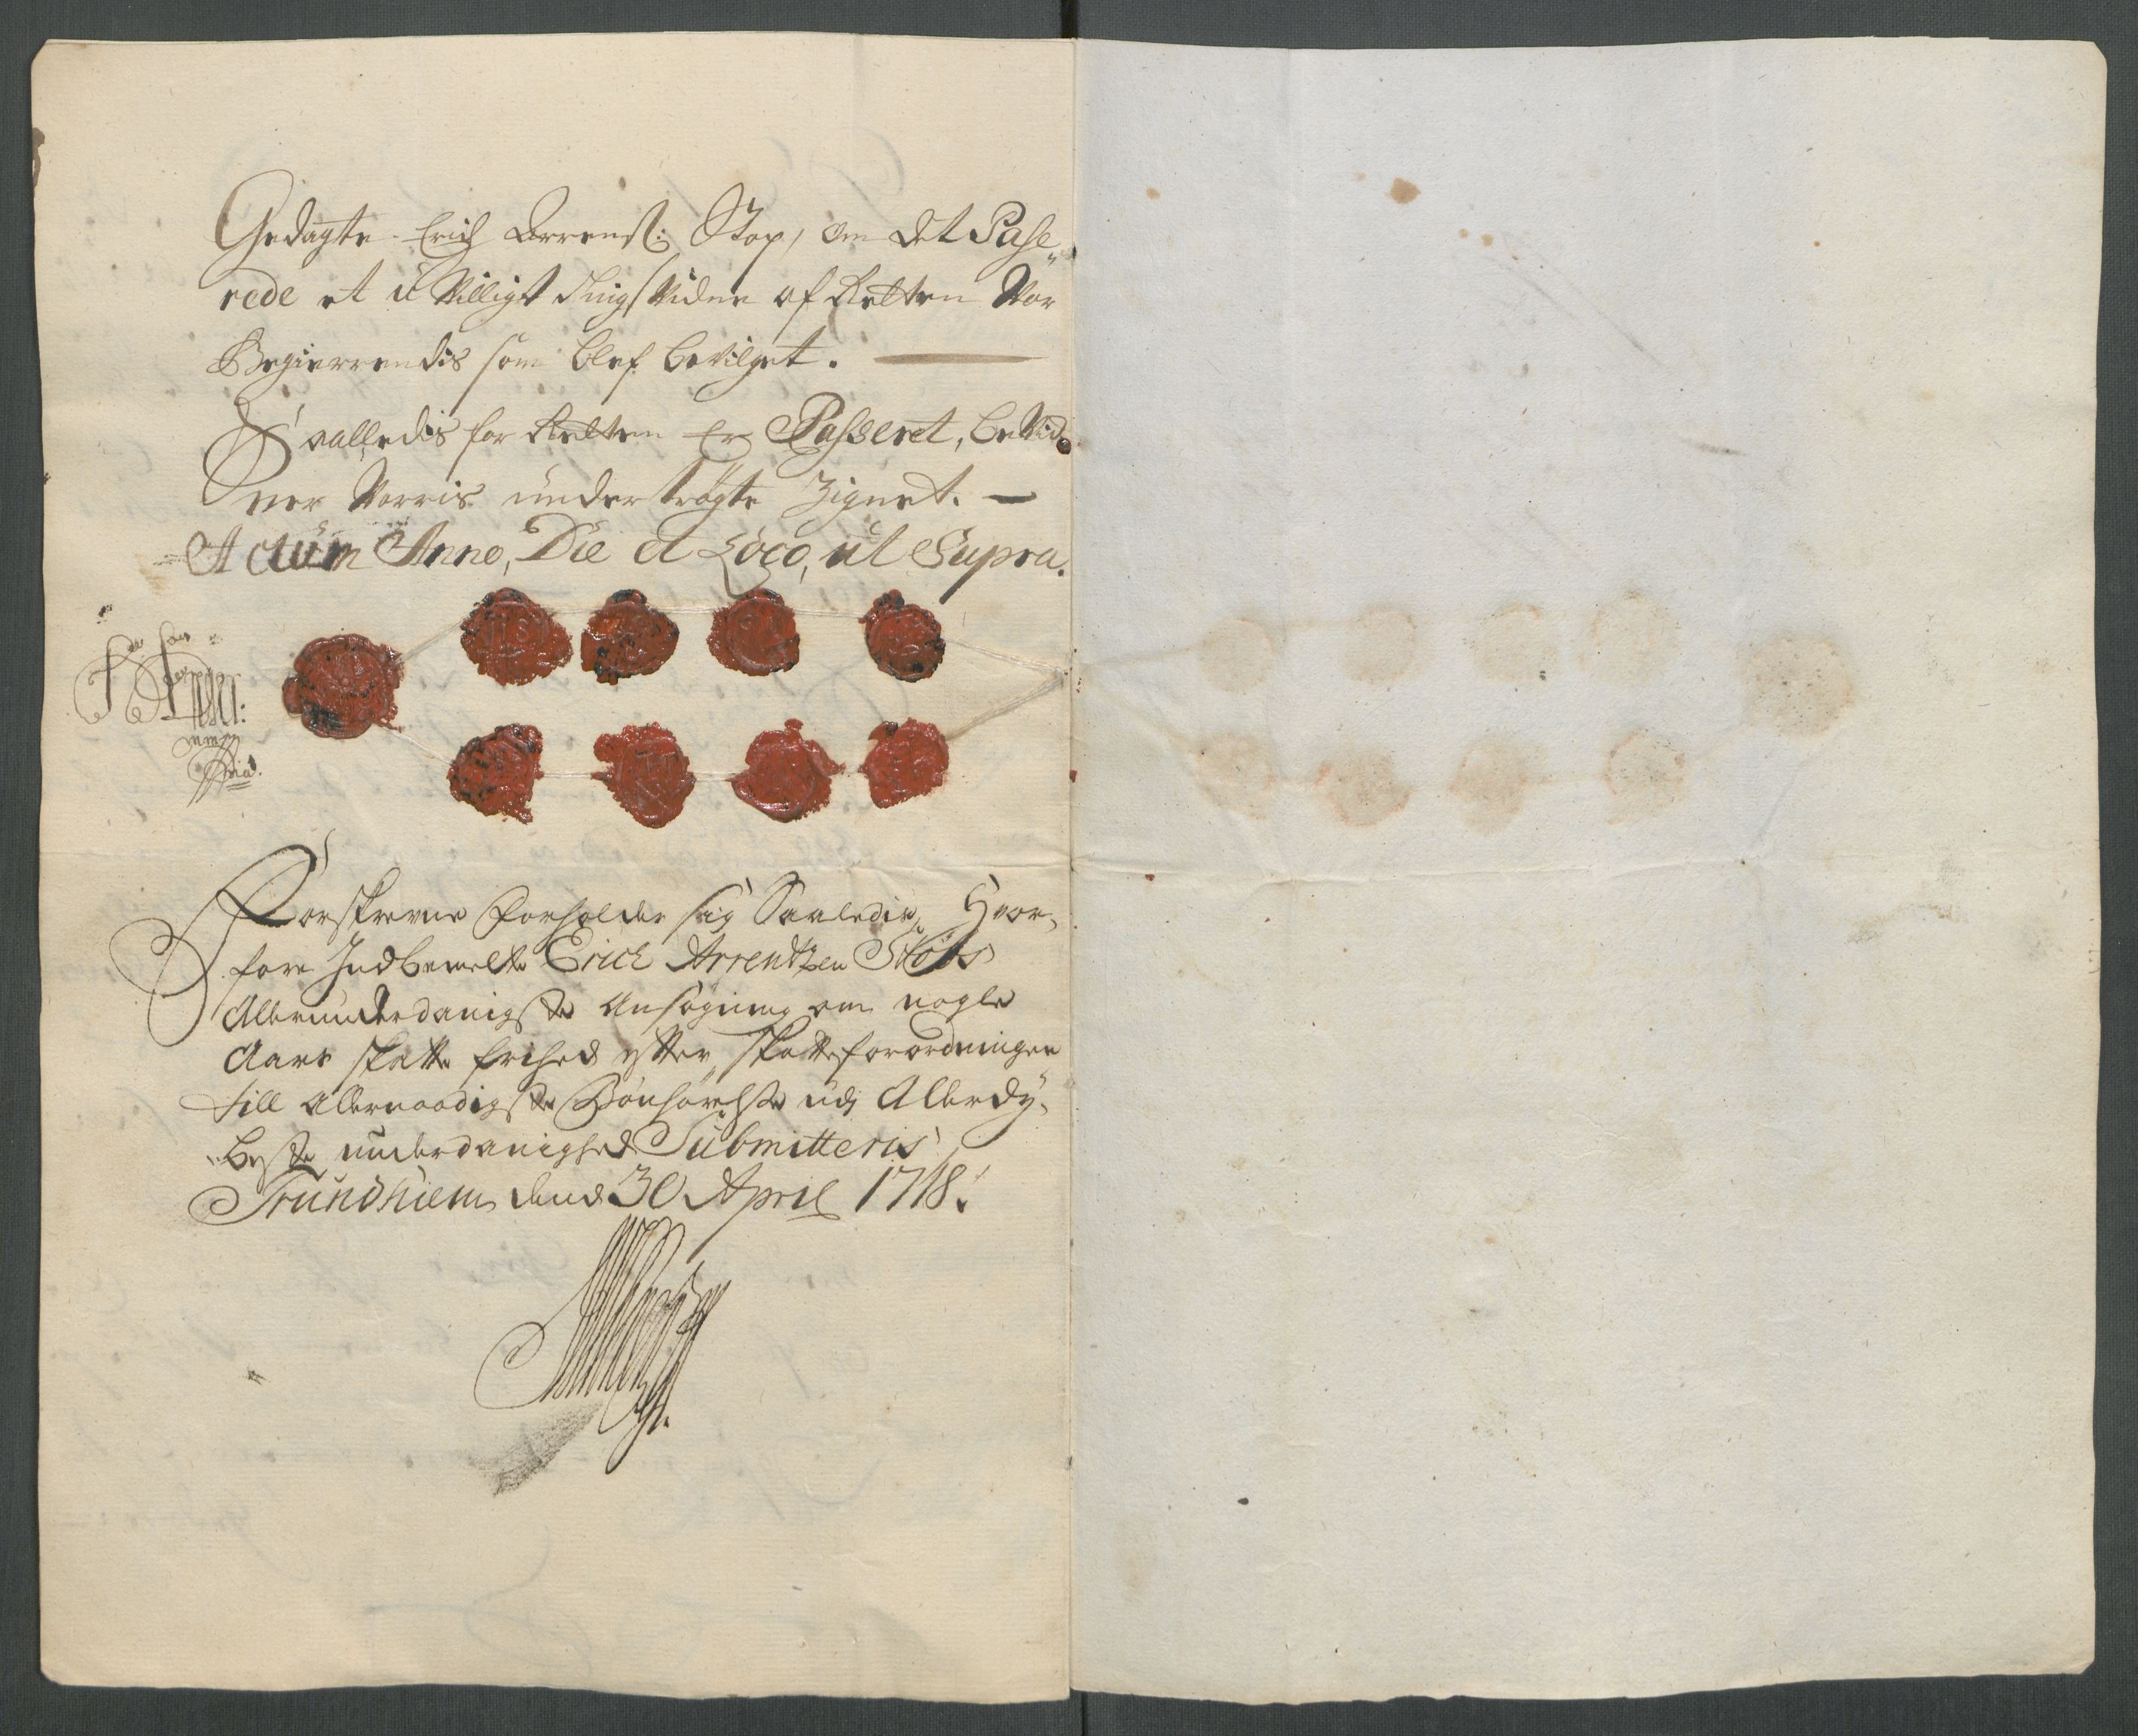 Gedagte Erich Arrends: Stop, om det Passe„
rede et u Villigt Tingsvidne af Retten Var
Begierrendis som blef bevilget.
Saaalledis for Retten Er Passeret, bevid„
ner Vorris undertrøgte Zignet.
Actum Anno, Die et Loco, ut Supra.
Forskrevne forholder sig Saaledis, Hvor„
fore Indbemelte Erich Arrentzen Støbs
Allerunderdanigste Ansøgning om nogle
Aars skatte frihed efter skatteforordningen
till Allernaadigste Bønhørelse udj Allerdy„
beste underdanighed Submitteris
Trundhiem dend 30 April 1718.